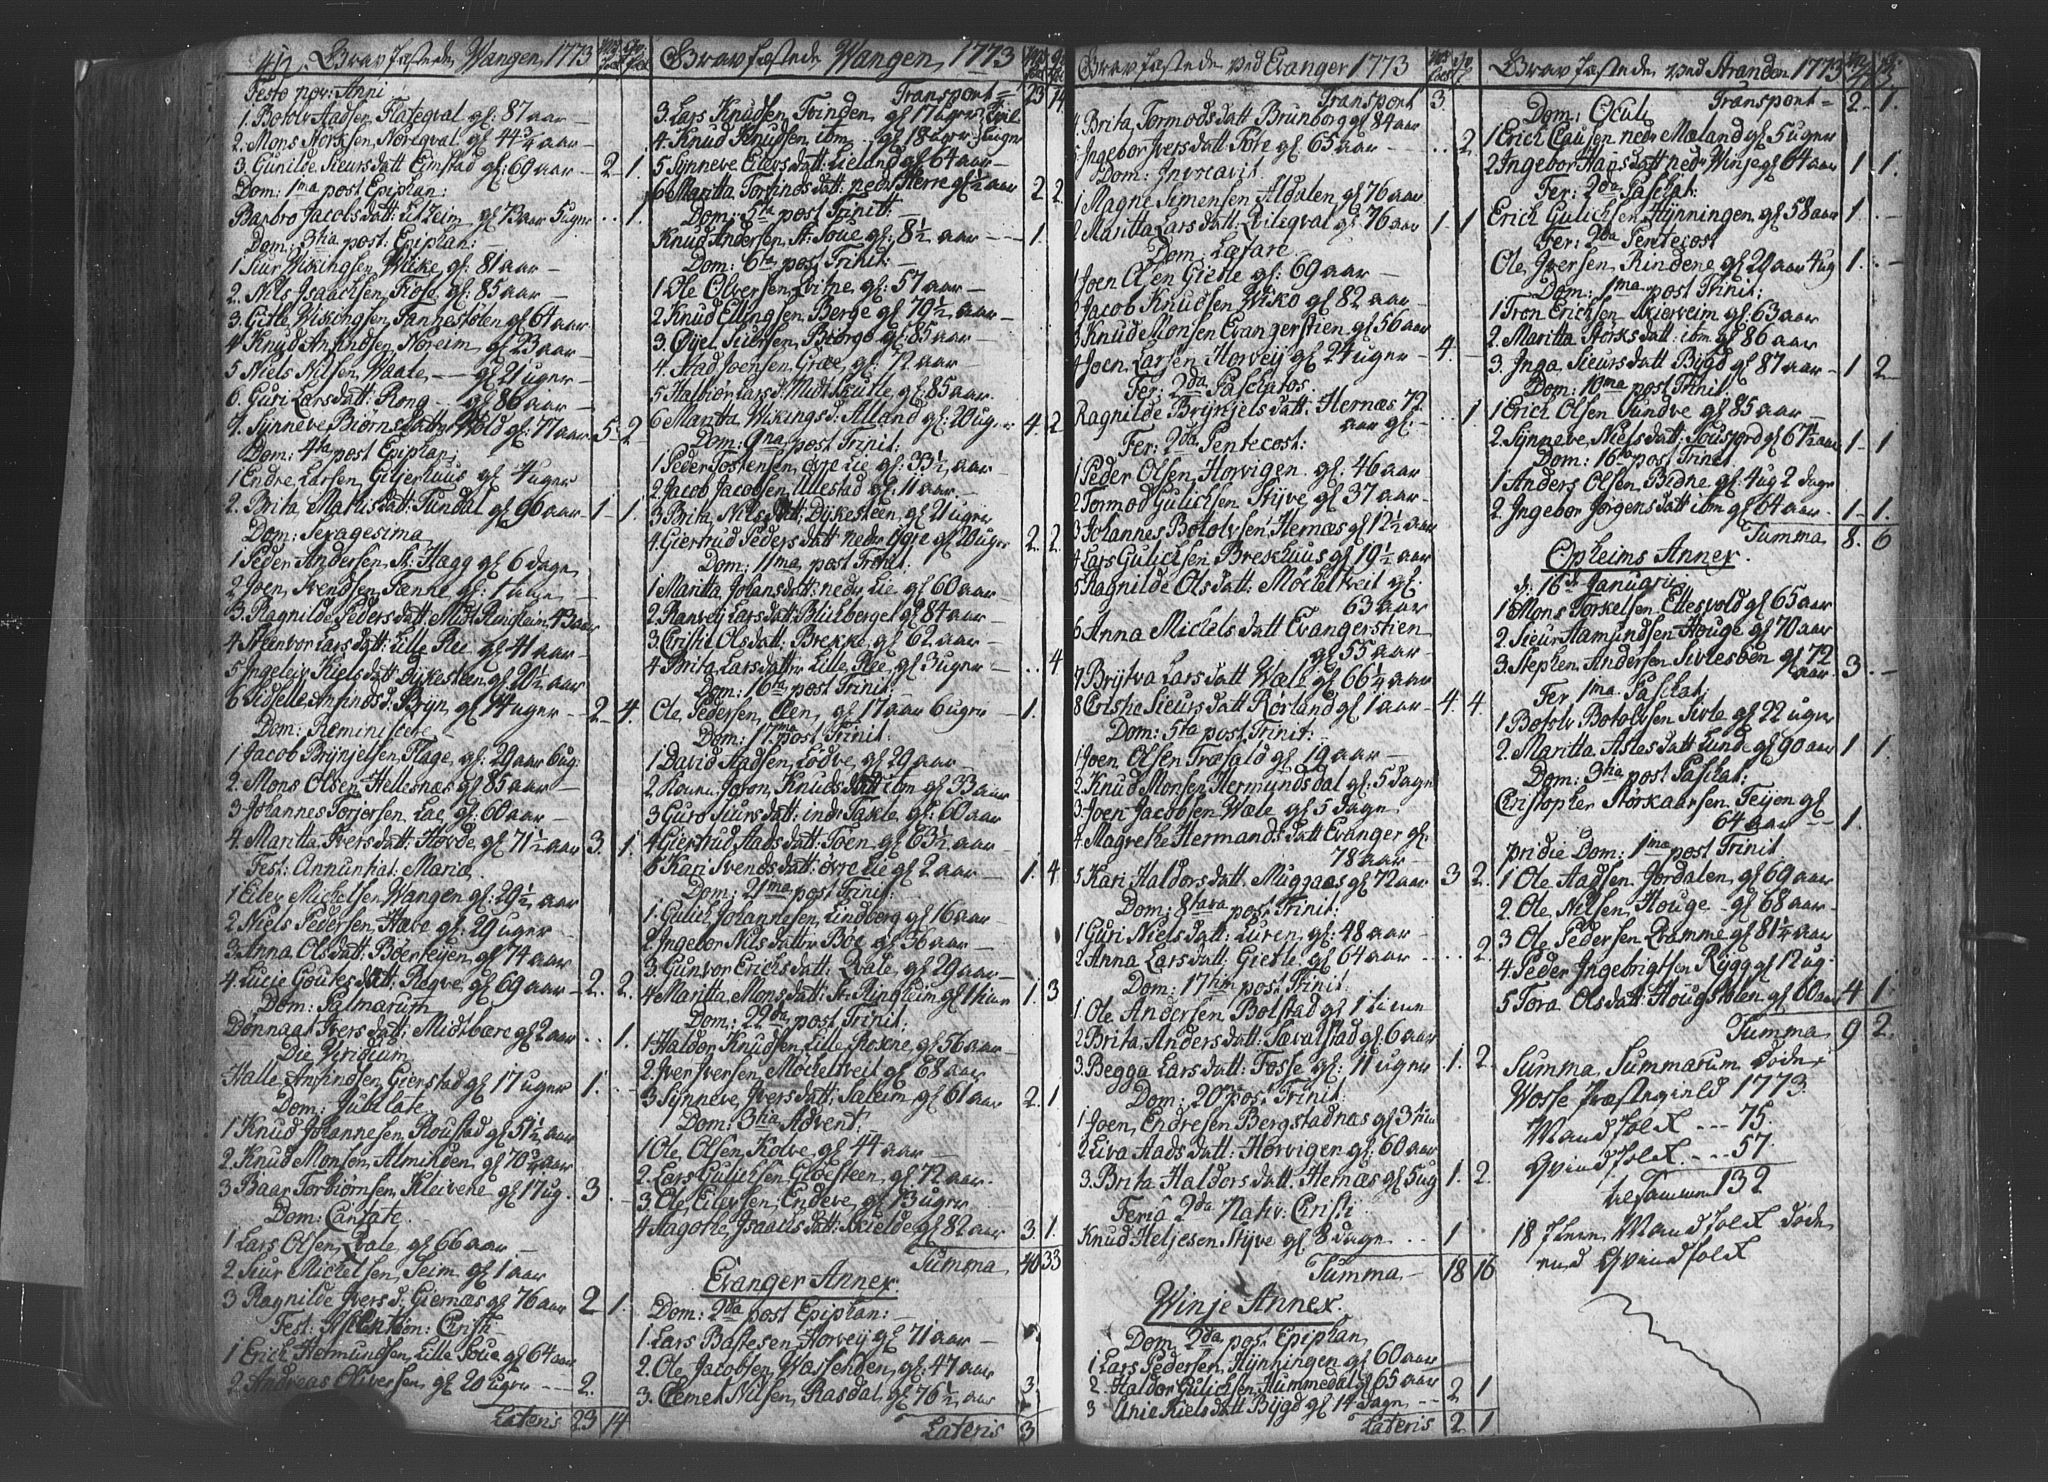 412. Gravfæstede Wangen 1773
Festo nov: Anni
1. Botolv Aadsen Flategval gl: 87 aar
2. Mons Størksen Noreqval gl 44 3/4 aar
3. Gunilde Siursdatt Emstad gl 69 aar 2 1.
Dom: 1ma post Epiphan:
Barbro Jacobsdatt Litzeim gl 72 aar 5 uger .. 1.
Dom: 3tia post: Epiphan:
1 Siur Wikingsen, Wicke, gl: 81 aar
2. Nils Isaachsen, Fiose gl: 85 aar
3. Gitle Wikingsen Fannestølen gl 64 aar
4 Knud Anfindsen Noreim gl 23 aar
5 Niels Nilsen Waale gl 21 uger
6. Guri Larsdatt: Rong gl 86 aar
7. Synneve Biørnsdatt Wold gl: 77 aar 5 2.
Dom: 4ta post Epiphan
1 Endre Larsen Giljerhuus gl 4 uger
2. Brita Mathisdatt: Tundal gl 96 aar 1 1.
Dom: Sexagesima
1 Peder Andersen St: Flagg gl 6 dage
2 Joen Svendsen Fenne gl: 1 time
3. Ragnilde Pedersdatt: Midt Ringheim, 43 aar
4 Steenvor Larsdatt: Lille Ree gl 41 aar
5 Ingelev Nielsdatt Dykesteen gl 20 1/2 aar
6 Edselle Anfindsd: Bryn gl 14 uger 2 4.
Dom: Reminiscere
1 Jacob Brynjelsen Flage gl: 29 aar 6 ug:
2. Mons Olsen Hellesnæs gl 85 aar
3 Johannes Torjersen Lae gl 60 aar
4. Maritta Iversdatt: Hovde gl 71 1/2 aar 3. 1.
Fest: Annuntiat: Mariæ
1 Eilev Michelsen Wangen gl: 29 1/2 aar
2 Niels Pedersen Hæve gl: 29 uger
3. Anna Olsdatt: Børtveijen gl 74 aar
4. Lucie Goutesdatt: Reqve gl 69 aar 2. 2.
Dom: Palmarum
Donnaat Iversdatt: Midtbære gl 2 aar .. 1.
Die Viridium
Halle Anfindsen Gierstad gl 17 uger 1.
Dom: Jubilate
1 Knud Johannesen Roustad gl 51 1/2 aar
2. Knud Monsen Alminden gl 70 3/4 aar
3 Baar Torbiørnsen Kleivene gl 17 ug. 3.
Dom: Cantate
1 Lars Olsen Qvale gl 66 aar
2 Siur Michelsen Seim gl 1 aar
3 Ragnilde Ivers d: Giernæs gl 76 aar 2 1.
Fest: Ascention: Christi
1 Erich Hermundsen, Lille Soue gl 64 aar
2 Andreas Oliversen gl 20 uger 2.
Lateris 23 14
Gravfæstede Wangen 1773
Transport 23 14
3. Lars Knudsen Tvinden gl 17 uger
4. Knud Knudsen ibm gl 18 uger
5 Synneve Eilevsdatt: Lieland gl 64 aar
6 Maritta Torfindsdatt: nedr Herre gl 1/2 aar 2 2.
Dom: 5ta post Trinit:
Knud Andersen St: Soue gl: 8 1/2 aar 1.
Dom: 6ta post Trinit:
1 Ole Olversen Lvitne gl: 57 aar
2 Knud Ellingsen Berge gl 79 1/2 aar
3. Øyel Siursen Biørgo gl: 85 aar
4. Stad Joensen Græe gl: 72 aar
5 Halbiør Lars d: Midtlsutte gl: 85 aar
6 Maritta Wikings d: Alland gl: 20 uger 4 2
Dom: 9na post Trinit:
1 Peder Tostensen øvre Lie gl: 33 1/2 aar
2. Jacob Jacobsen, Ullestad gl: 11 aar
3 Brita Nilsdatt: Dykesteen gl: 21 uger
4. Giertrud Pedersdatt nedr Øyre gl 20 uger 2 2.
Dom: 11ma post Trinit:
1 Maritta Johansdatt: nedr Lie gl 60 aar
2 Ranvey Larsdatt: Bliexberget gl 84 aar
3. Cristi Olsdatt: Brekke gl 62 aar
4 Brita Larsdatter Lille Ree, gl 3 uger .. 4
Dom: 16ta post Trinit:
Ole Pedersen Leen gl 17 aar 6 uger 1.
Dom: 17ma post Trinit:
1 David Aadsen Lødve gl 29 aar
2 Konen Joron Knudsdatt ibm gl 33 aar
3 Guro Siursdatt: indr Takle gl: 60 aar
4 Giertrud Aadsdatt: Toen gl: 63 1/2 aar
5 Kari Svendsdatt: øvre Lie gl 2 aar 1. 4.
Dom: 21ma post Trinit:
1. Gulich Johannesen Lindberg gl 16 aar
2. Ingebor Nilsdatter Bøe gl 36 aar
3. Gunvor Erichsdatt: Qvale gl 29 aar
4 Maritta Monsdatt: St: Ringheim gl 1 time 1. 3
Dom: 22da post Trinit:
1 Haldor Knudsen Lille Roxne gl: 56 aar
2. Iver Iversen Møcheltveit gl 68 aar
3 Synneve Iversdatt: Saleim gl 61 aar 2. 1
Dom: 3tia Advent:
1 Ole Olsen Kolve gl 44 aar
2. Lars Gulichsen Gloesteen gl 72 aar.
3. Ole Eilevsen Endeve gl 13 uger
4 Aagothe Isaacksdatt: Skielde gl 82 aar 3. 1.
Summa 40 33
Evanger Annex.
Dom: 2da post Epiphan:
1. Lars Baltesen Horvey gl 71 aar
2. Ole Jacobsen Wassenden gl 47 aar
3. Clemet Nilsen Rasdal gl 76 1/2 aar 3.
Lateris 3
Gravfæstede ved Evanger 1773
Transport 3.
4. Brita Tormodsdatt Brunborg gl 84 aar
5 Ingebor Iversdatt Fote gl. 65 aar .. 2.
Dom: Invocavit.
1 Magne Simensen Aldalen gl 76 aar
2 Maritta Larsdatt: Qvileqval gl 76 aar 1. 1
Dom: Lætare
1 Joen Olsen Gietle gl: 69 aar
2 Jacob Knudsen Wiko gl 82 aar
3 Knud Monsen Evangerstien gl 56 aar
4 Joen Larsen Horvey gl 24 uger 4.
Fer: 2da Paschatos.
Ragnilde Brynjelsdatt: Hernæs 72
aar gl: .. 1.
Fer: 2da Pentecost:
1 Peder Olsen, Horvigen gl: 46 aar
2 Tormod Gulichsen Styve gl 37 aar
3 Johannes Botolvsen Hernæs gl 12 1/2 aar
4 Lars Gulichsen Brekhuus gl 19 1/2 aar
5 Ragnilde Olsdatt: Møcheltveit gl:
63 aar
6 Anna Michelsdatt Evangerstien
gl 55 aar
7 Brytva Larsdatt Wæle gl 66 1/4 aar
8 Cristie Sieursdatt Rørland gl 1 aar 4. 4.
Dom: 5ta post Trinit:
1 Joen Olsen Træfald gl 19 aar
2. Knud Monsen Hermundsdal gl: 5 dage
3. Joen Jacobsen Wæle gl 5 dage
4 Magrethe Hermandsdatt Evanger gl:
78 aar
5 Kari Haldorsdatt Muggaas gl 72 aar 3 2.
Dom: 8tava post Trinit:
1 Guri Nielsdatt: Luren gl: 48 aar
2. Anna Larsdatt Gietle gl 64 aar .. 2.
Dom: 17him post Trinit:
1. Ole Andersen Bolstad gl 1 time
2 Brita Andersdatt: Sævalstad gl: 6 aar
3. Begga Larsdatt: Fosse gl: 11 uger 1. 2.
Dom: 20ma post Trinit:
1 Joen Endresen Bergstadnæs gl 3 tim
2 Eiva Aadsdatt: Horvigen gl: 60 aar
3. Brita Haldorsdatt: Hernæs gl 5 ug 1. 2.
Feria 2da Nativ: Christi
Knud Heljesen Styve gl 8 dage .. 1
Summa 18 16
Winje Annex.
Dom 2da post Epiphan
1 Lars Pedersen Hynningen gl 60 aar
2. Haldor Gulichsen Hummedal gl 65 aar 2 1
3 Anie Nielsdatt Bygd gl 14 dage
Lateris 2 1
Gravfæstede ved Stranden 1773
Dom: Oculi Transport 2. 1.
1 Erich Clausen nedr Mæland gl 5 uger
2 Ingebor Hansdatt nedr Winje gl 64 aar 1 1.
Fer: 2da Paschat:
Erich Gulichsen Hynningen gl 58 aar 1.
Fer: 2da Pentecost
Ole Iversen, Rindene gl 29 aar 4 ug 1.
Dom: 1ma post Trinit:
1 Tron Erichsen Skierveim gl 63 aar
2. Maritta Størksdatt: ibm gl 86 aar
3. Inga Sieursdatt Bygd gl 87 aar 1 2
Dom: 10ma post Trinit:
1 Erich Olsen Sundve gl 85 aar
2. Synneve Nielsdatt: Sousjord gl 67 1/2 aar 1 1
Dom: 16ta post Trinit
1 Anders Olsen Bidne gl: 4 ug 2 dage
2. Ingebor Jørgensdatt ibm gl 64 aar 1 1.
Summa 8. 6
Opheims Annex.
d: 16de Januarii
1 Mons Torkelsen Ettesvold gl 65 aar
2. Sieur Aamundsen Houge gl 70 aar
3. Stephen Andersen Sivlesøen gl 72
aar 3.
Fer 1ma Paschat:
1 Botolv Botolvsen Sivle gl 22 uger
2. Maritta Aslesdatt Tunde gl 90 aar 1 1
Dom: 3tia post Paschat:
Christopher Størkaarsen Teijen gl
64 aar 1.
pridie Dom: 1ma post Trinit
1 Ole Aadsen Jordalen gl 69 aar
2. Ole Nilsen Houge gl 68 aar
3 Ole Pedersen Qramme gl 81 1/4 aar
4. Peder Ingebrigtsen Rygg gl 12 ug
5 Tora Olsdatt: Hougstølen gl 60 aar 4 1
Summa 9 2.
Summa Summarum døde
Wosse Præstegield 1773.
Mandfolk 75.
Qvindfolk 57.
tilsammen 132
18 fleere Mandfolk døde
end Qvindfolk